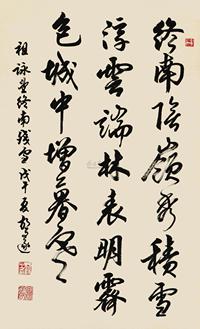 終南陰嶺秀積雪
浮雲端林表明霽
色城中增暮寒
祖詠望終南殘雪戊午夏